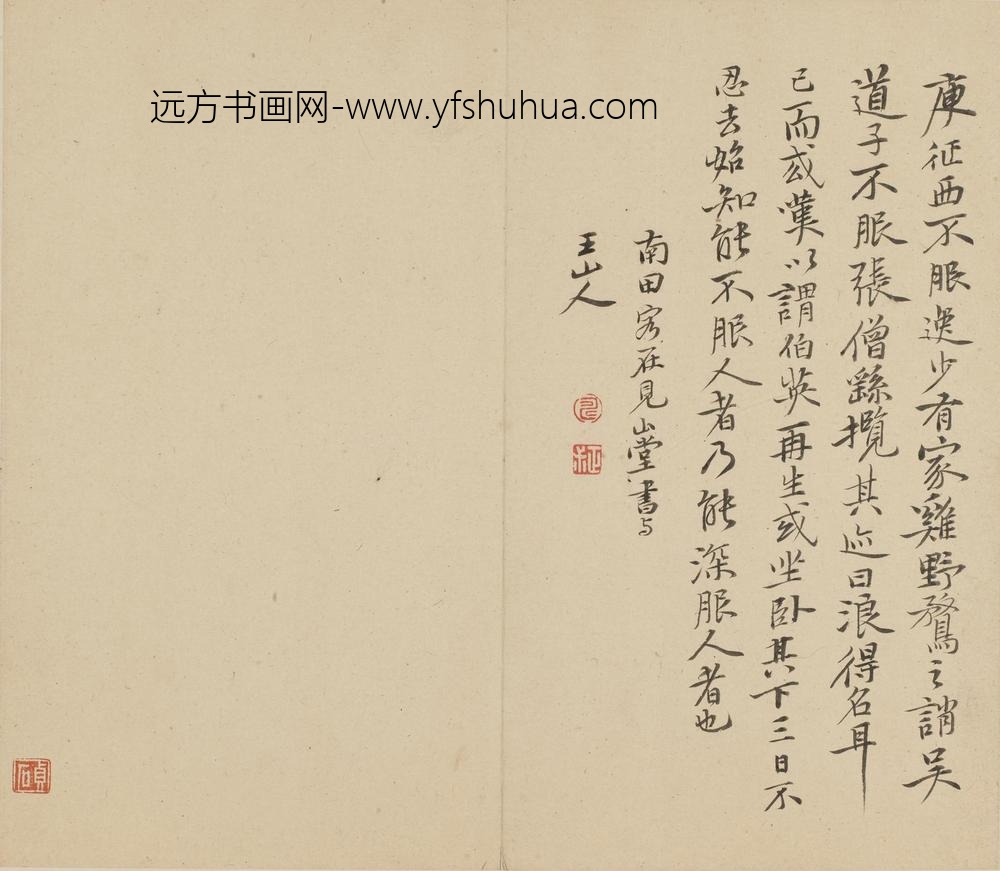 远方书画网-www.yfshuhua.com
庾征西不服逸少有家雞野鶩之誚吴
道子不服張僧繇攬其迹曰浪得名耳
已而或嘆以謂伯英再生或坐卧其下三日不
忍去始知能不服人者乃能深服人者也
南田客在見山堂書与
王山人